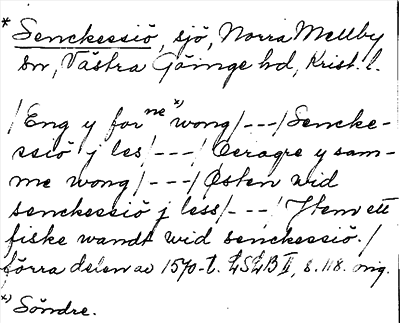 * Senckessiö, sjö, Norra Mellby
sn, Västra Göinge hd, Krist. l.
/Eng y for ne *) wong/---/Sencke-
ssiö j les/---/Ceragre y sam-
me wong/---/Østen wid
senckessiö j less/---/Item ett
fiske wandt wid senckessiö./
förra delen av 1570-t. LSLB II, s. 118. orig.
*) Söndre.